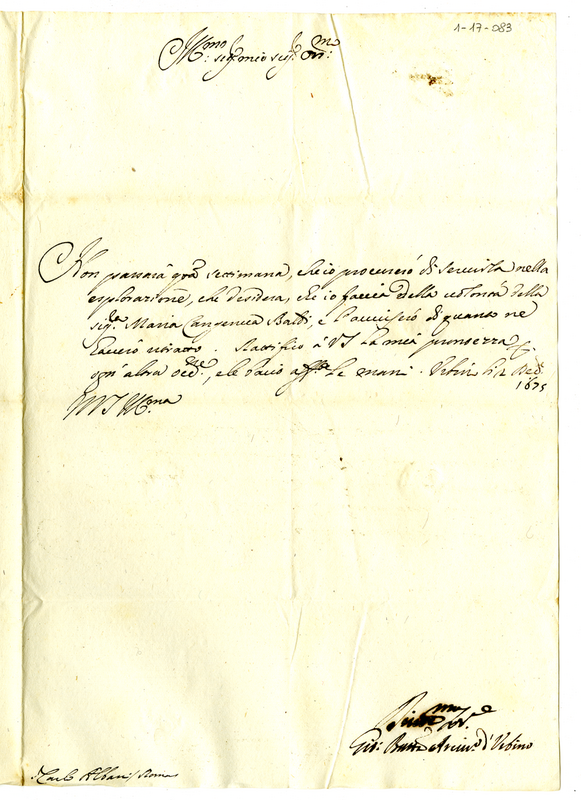 1-17-083
Ill.mo sig.r mio sig.r Oss.mo
Non passarà q.ta settimana, che io procurerò di servirla nella
esplorazione, che desidera, che io faccia della volontà della
sig.ra Maria Baldi, e l'avviserò di quanto ne
haverò ritratto. Ratifico à VS la mia prontezza
ogn'altra occ.ne, e le bacio aff.te le mani. Urbino
1675
VS Ill.ma
Gio: Batta Arciv.o d'Urbino
Carlo Albani Roma